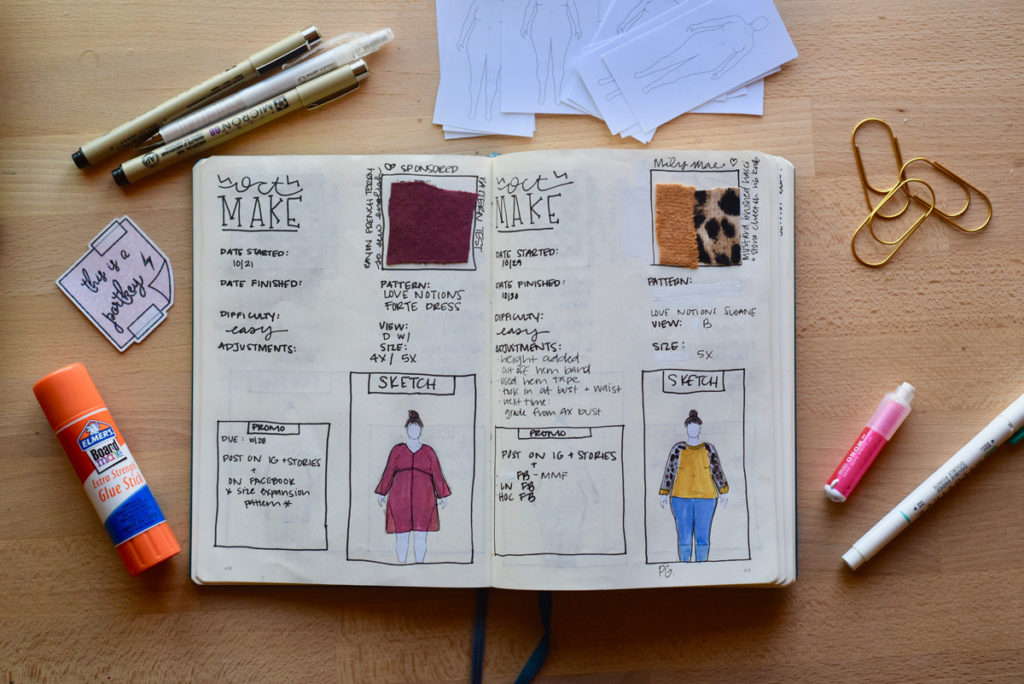 MICRON 08
this is a
portkey
ELMER'S
Board
mate
Extra Strength
Glue Stick
MONO
OCT
MAKE
DATE STARTED:
10/21
DATE FINISHED:
DIFFICULTY:
easy
ADJUSTMENTS:
♡ SPONSORED
PATTERN TEST
PATTERN:
LOVE NOTIONS
FORTE DRESS
VIEW:
D W/
SIZE:
4X / 5X
PROMO
DUE: 10/28
POST ON IG + STORIES
+
ON FACEBOOK
* SIZE EXPANSION
pattern *
SKETCH
OCT
MAKE
DATE STARTED:
10/29
DATE FINISHED:
10/30
DIFFICULTY:
easy
ADJUSTMENTS:
· height added
· cut off hem band
· used hem tape
· took in at bust + waist
· next time:
grade from 4x bust
Mily Mae ♡
mustard brushed hacci
PATTERN:
LOVE NOTIONS SLOANE
VIEW: B
SIZE:
5X
PROMO
POST ON IG + STORIES
+
FB - MMF
- LN FB
HOC FB
SKETCH
PG.